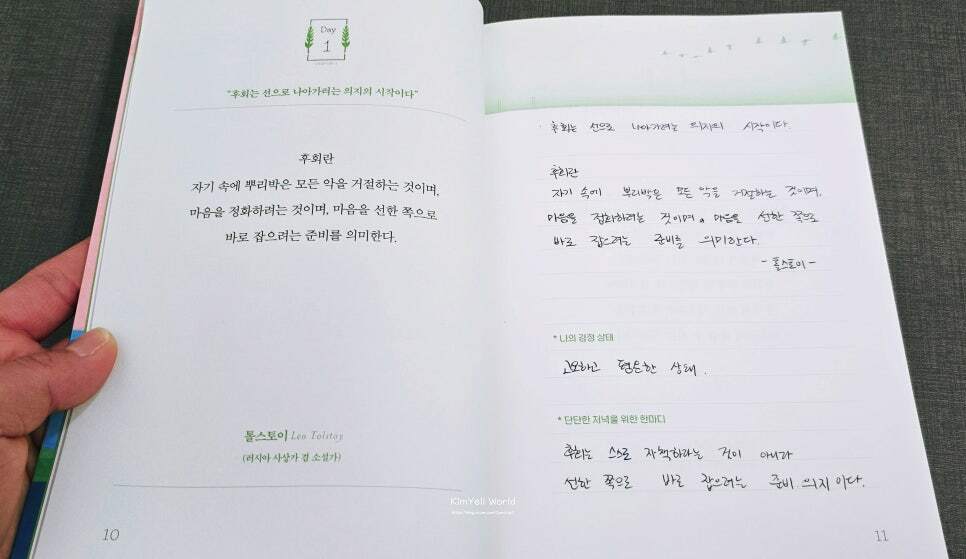 Day
1
"후회는 선으로 나아가려는 의지의 시작이다"
후회란
자기 속에 뿌리박은 모든 악을 거절하는 것이며,
마음을 정화하려는 것이며, 마음을 선한 쪽으로
바로 잡으려는 준비를 의미한다.
톨스토이 Leo Tolstoy
(러시아 사상가 겸 소설가)
10
후회는 선으로 나아가려는 의지의 시작이다.
후회란
자기 속에 뿌리박은 모든 악을 거절하는 것이며,
마음을 정화하려는 것이며, 마음을 선한 쪽으로
바로 잡으려는 준비를 의미한다.
- 톨스토이 -
* 나의 감정 상태
고요하고 평온한 상태.
* 단단한 저녁을 위한 한마디
후회는 스스로 자책하라는 것이 아니라
선한 쪽으로 바로 잡으려는 준비, 의지이다.
KimYeli World
11